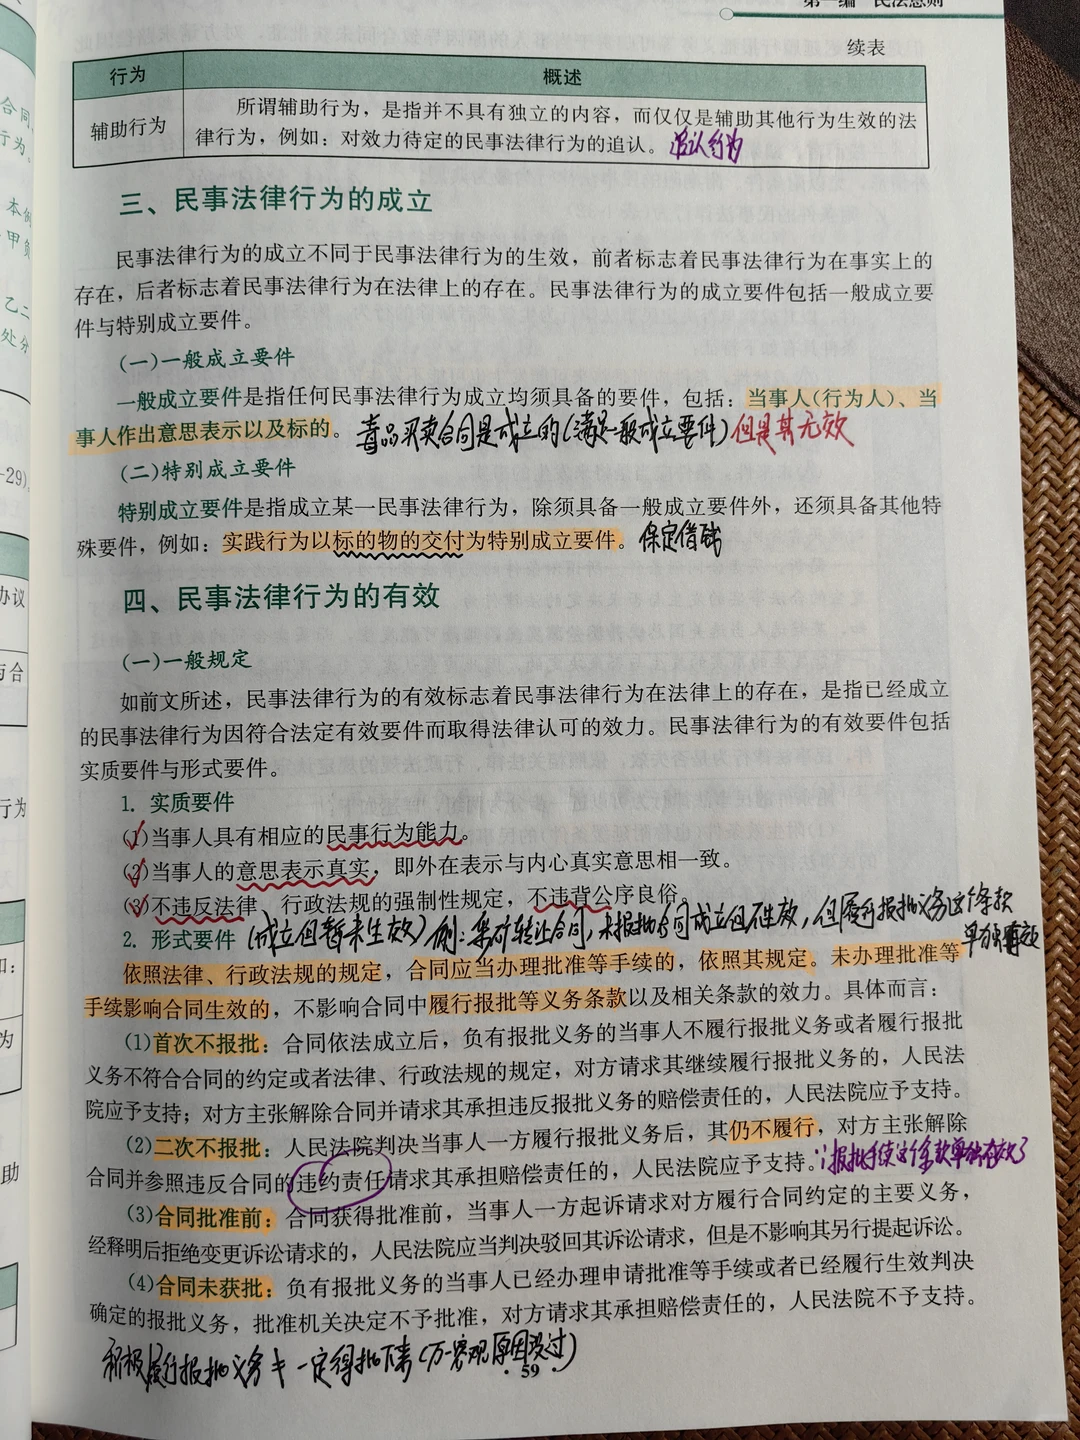 第一编 民法总则
续表
行为 概述
辅助行为 所谓辅助行为，是指并不具有独立的内容，而仅仅是辅助其他行为生效的法
律行为，例如：对效力待定的民事法律行为的追认。 追认行为
三、民事法律行为的成立
民事法律行为的成立不同于民事法律行为的生效，前者标志着民事法律行为在事实上的
存在，后者标志着民事法律行为在法律上的存在。民事法律行为的成立要件包括一般成立要
件与特别成立要件。
(一)一般成立要件
一般成立要件是指任何民事法律行为成立均须具备的要件，包括：当事人(行为人)、当
事人作出意思表示以及标的。 毒品买卖合同是成立的(满足一般成立要件)但是其无效
(二)特别成立要件
特别成立要件是指成立某一民事法律行为，除须具备一般成立要件外，还须具备其他特
殊要件，例如：实践行为以标的物的交付为特别成立要件。 保定借
四、民事法律行为的有效
(一)一般规定
如前文所述，民事法律行为的有效标志着民事法律行为在法律上的存在，是指已经成立
的民事法律行为因符合法定有效要件而取得法律认可的效力。民事法律行为的有效要件包括
实质要件与形式要件。
1. 实质要件
(1)当事人具有相应的民事行为能力。
(2)当事人的意思表示真实，即外在表示与内心真实意思相一致。
(3)不违反法律、行政法规的强制性规定，不违背公序良俗。
2. 形式要件 (成立但暂未生效)例：采矿转让合同，未报批合同成立但不生效，但履行报批义务这个条款
单独有效
依照法律、行政法规的规定，合同应当办理批准等手续的，依照其规定。未办理批准等
手续影响合同生效的，不影响合同中履行报批等义务条款以及相关条款的效力。具体而言：
(1)首次不报批：合同依法成立后，负有报批义务的当事人不履行报批义务或者履行报批
义务不符合合同的约定或者法律、行政法规的规定，对方请求其继续履行报批义务的，人民法
院应予支持；对方主张解除合同并请求其承担违反报批义务的赔偿责任的，人民法院应予支持。
(2)二次不报批：人民法院判决当事人一方履行报批义务后，其仍不履行，对方主张解除
合同并参照违反合同的违约责任请求其承担赔偿责任的，人民法院应予支持。∵报批手续这条款单独有效了
(3)合同批准前：合同获得批准前，当事人一方起诉请求对方履行合同约定的主要义务，
经释明后拒绝变更诉讼请求的，人民法院应当判决驳回其诉讼请求，但是不影响其另行提起诉讼。
(4)合同未获批：负有报批义务的当事人已经办理申请批准等手续或者已经履行生效判决
确定的报批义务，批准机关决定不予批准，对方请求其承担赔偿责任的，人民法院不予支持。
积极履行报批义务≠一定得批下来(万一客观原因没过)
·59·